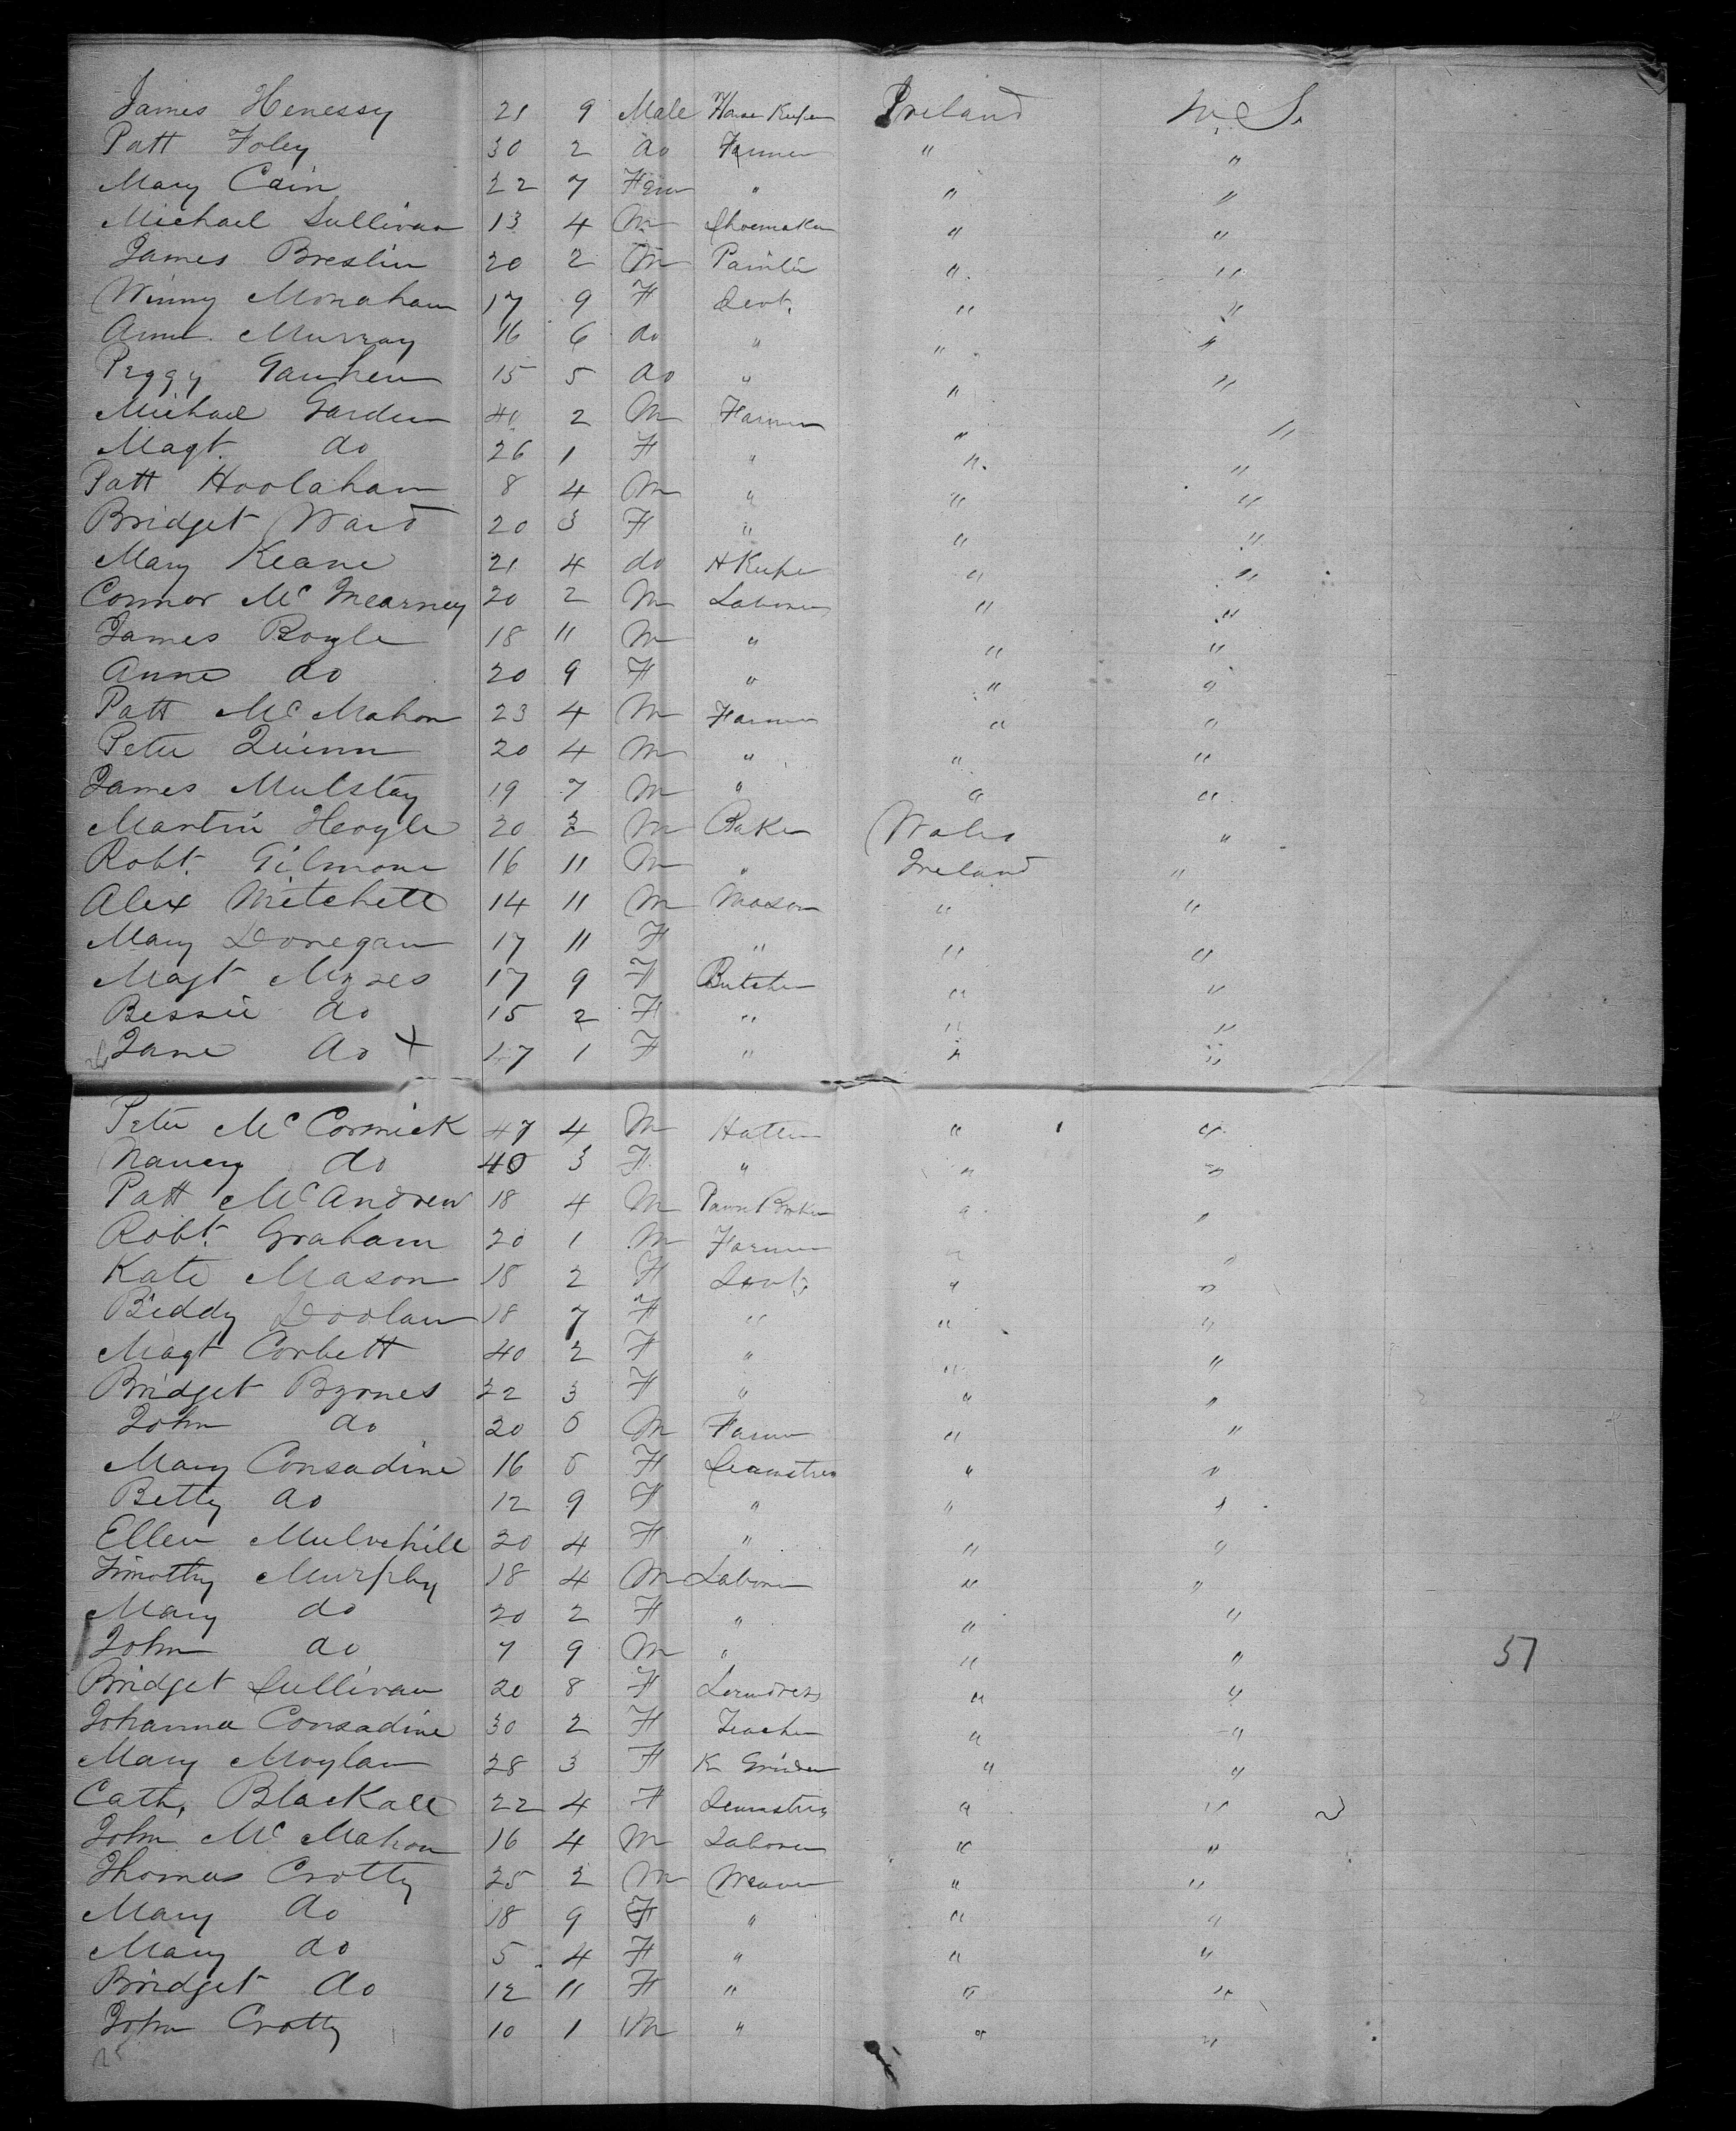 James Henessy 21 9 Male House Keeper Ireland U.S.
Patt Foley 30 2 do Farmer " "
Mary Cain 22 7 Fem " " "
Michael Sullivan 13 4 M Shoemaker " "
James Breslin 20 2 M Painter " "
Winny Monaham 17 9 F Servt. " "
Anne Murray 16 6 do " " "
Peggy Gaughen 15 5 do " " "
Michael Garden 40 2 M Farmer " "
Magt. do 26 1 F " " "
Patt Hoolaham 8 4 M " " "
Bridget Ward 20 3 F " " "
Mary Keane 21 4 do H Keeper " "
Connor Mc Inearney 20 2 M Laborer " "
James Boyle 18 11 M " " "
Anne do 20 9 F " " "
Patt McMahon 23 4 M Farmer " "
Peter Quinn 20 4 M " " "
James Mulstay 19 7 M " " "
Martin Heogle 20 2 M Baker Wales "
Robt. Gilmore 16 11 M " Ireland "
Alex Mitchell 14 11 M Mason " "
Mary Donegan 17 11 F " " "
Magt Myres 17 9 F Butcher " "
Bessie do 15 2 F " " "
26 Jane do + 47 1 F " " "
Peter McCormick 47 4 M Hatter " "
Nancy do 40 3 F " " "
Patt McAndrew 18 4 M Pawn Broker " "
Robt. Graham 20 1 M Farmer " "
Kate Mason 18 2 F Servt. " "
Biddy Doolan 18 7 F " " "
Magt Corbett 40 2 F " " "
Bridget Byrnes 22 3 F " " "
John do 20 6 M Farmer " "
Mary Consadine 16 6 F Seamstress " "
Betty do 12 9 F " " "
Ellen Mulvehill 20 4 F " " "
Timothy Murphy 18 4 M Laborer " "
Mary do 20 2 F " " "
John do 7 9 M " " " 51
Bridget Sullivan 20 8 F Laundress " "
Johanna Consadine 30 2 F Teacher " "
Mary Moylan 28 3 F K Grinder " "
Cath. Blackall 22 4 F Seamstress " "
John McMahon 16 4 M Laborer " "
Thomas Crotty 25 2 M Weaver " "
Mary do 18 9 F " " "
Mary do 5 4 F " " "
Bridget do 12 11 F " " "
John Crotty 10 1 M " " "
25